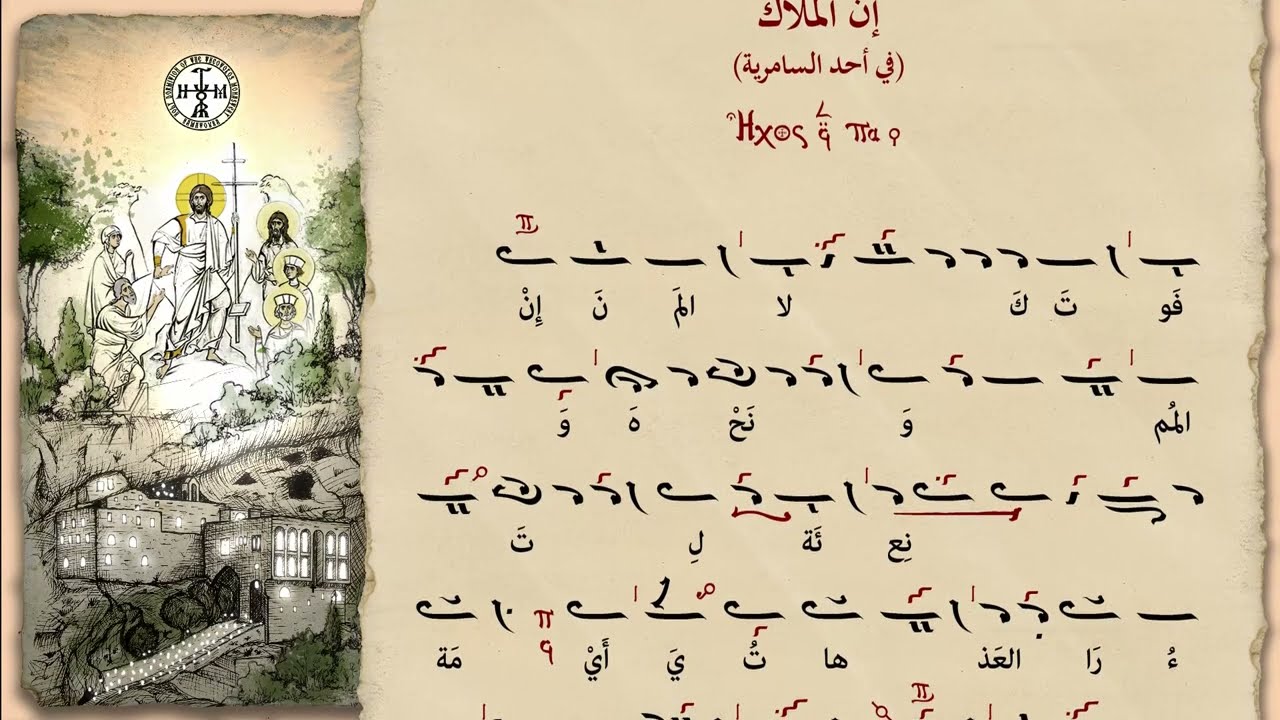 إن الملاك
(في أحد السامرية)
Ἦχος πα
إِنْ نَ المَ لا كَ تَ فَو
وَ هَ نَحْ وَ المُم
تَ لِ ئَة نِع
مَة أَيْ يَ تُ ها العَذ رَا ءُ